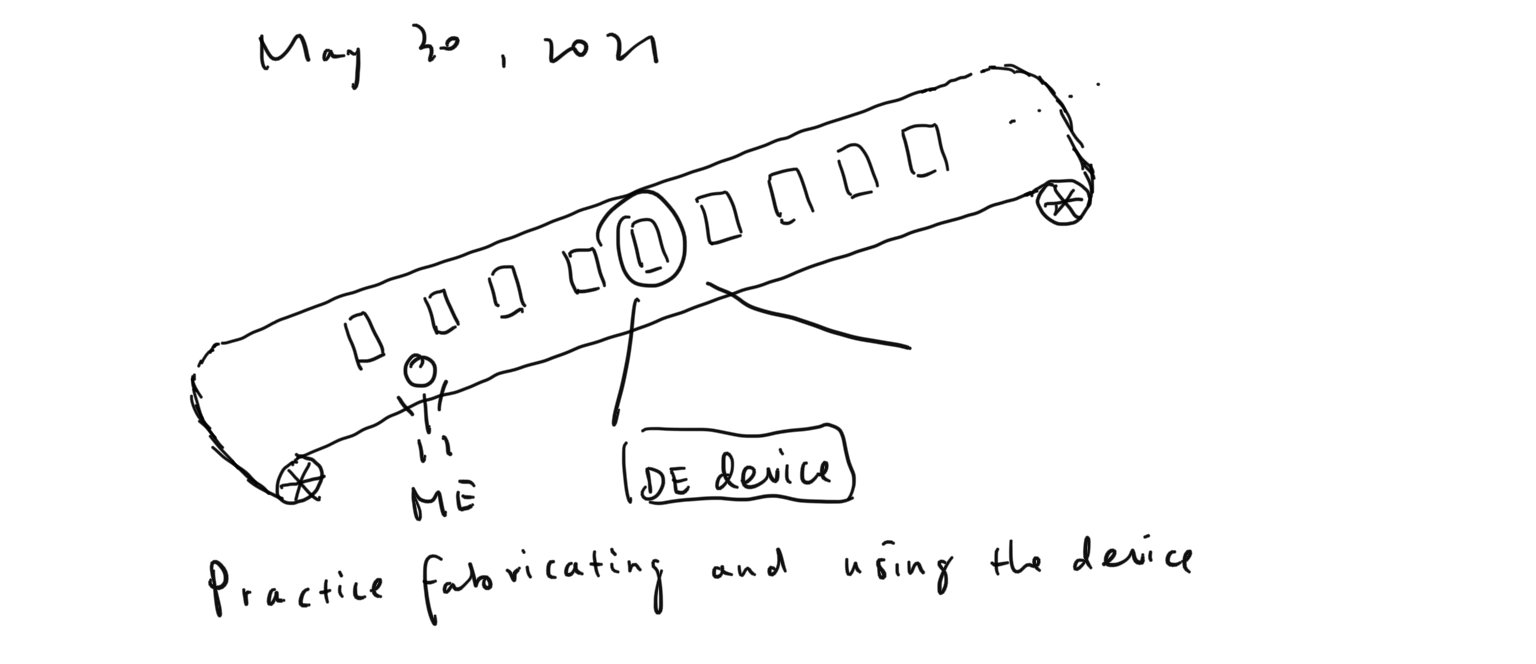 May 30, 2021
ME
DE device
Practice fabricating and using the device